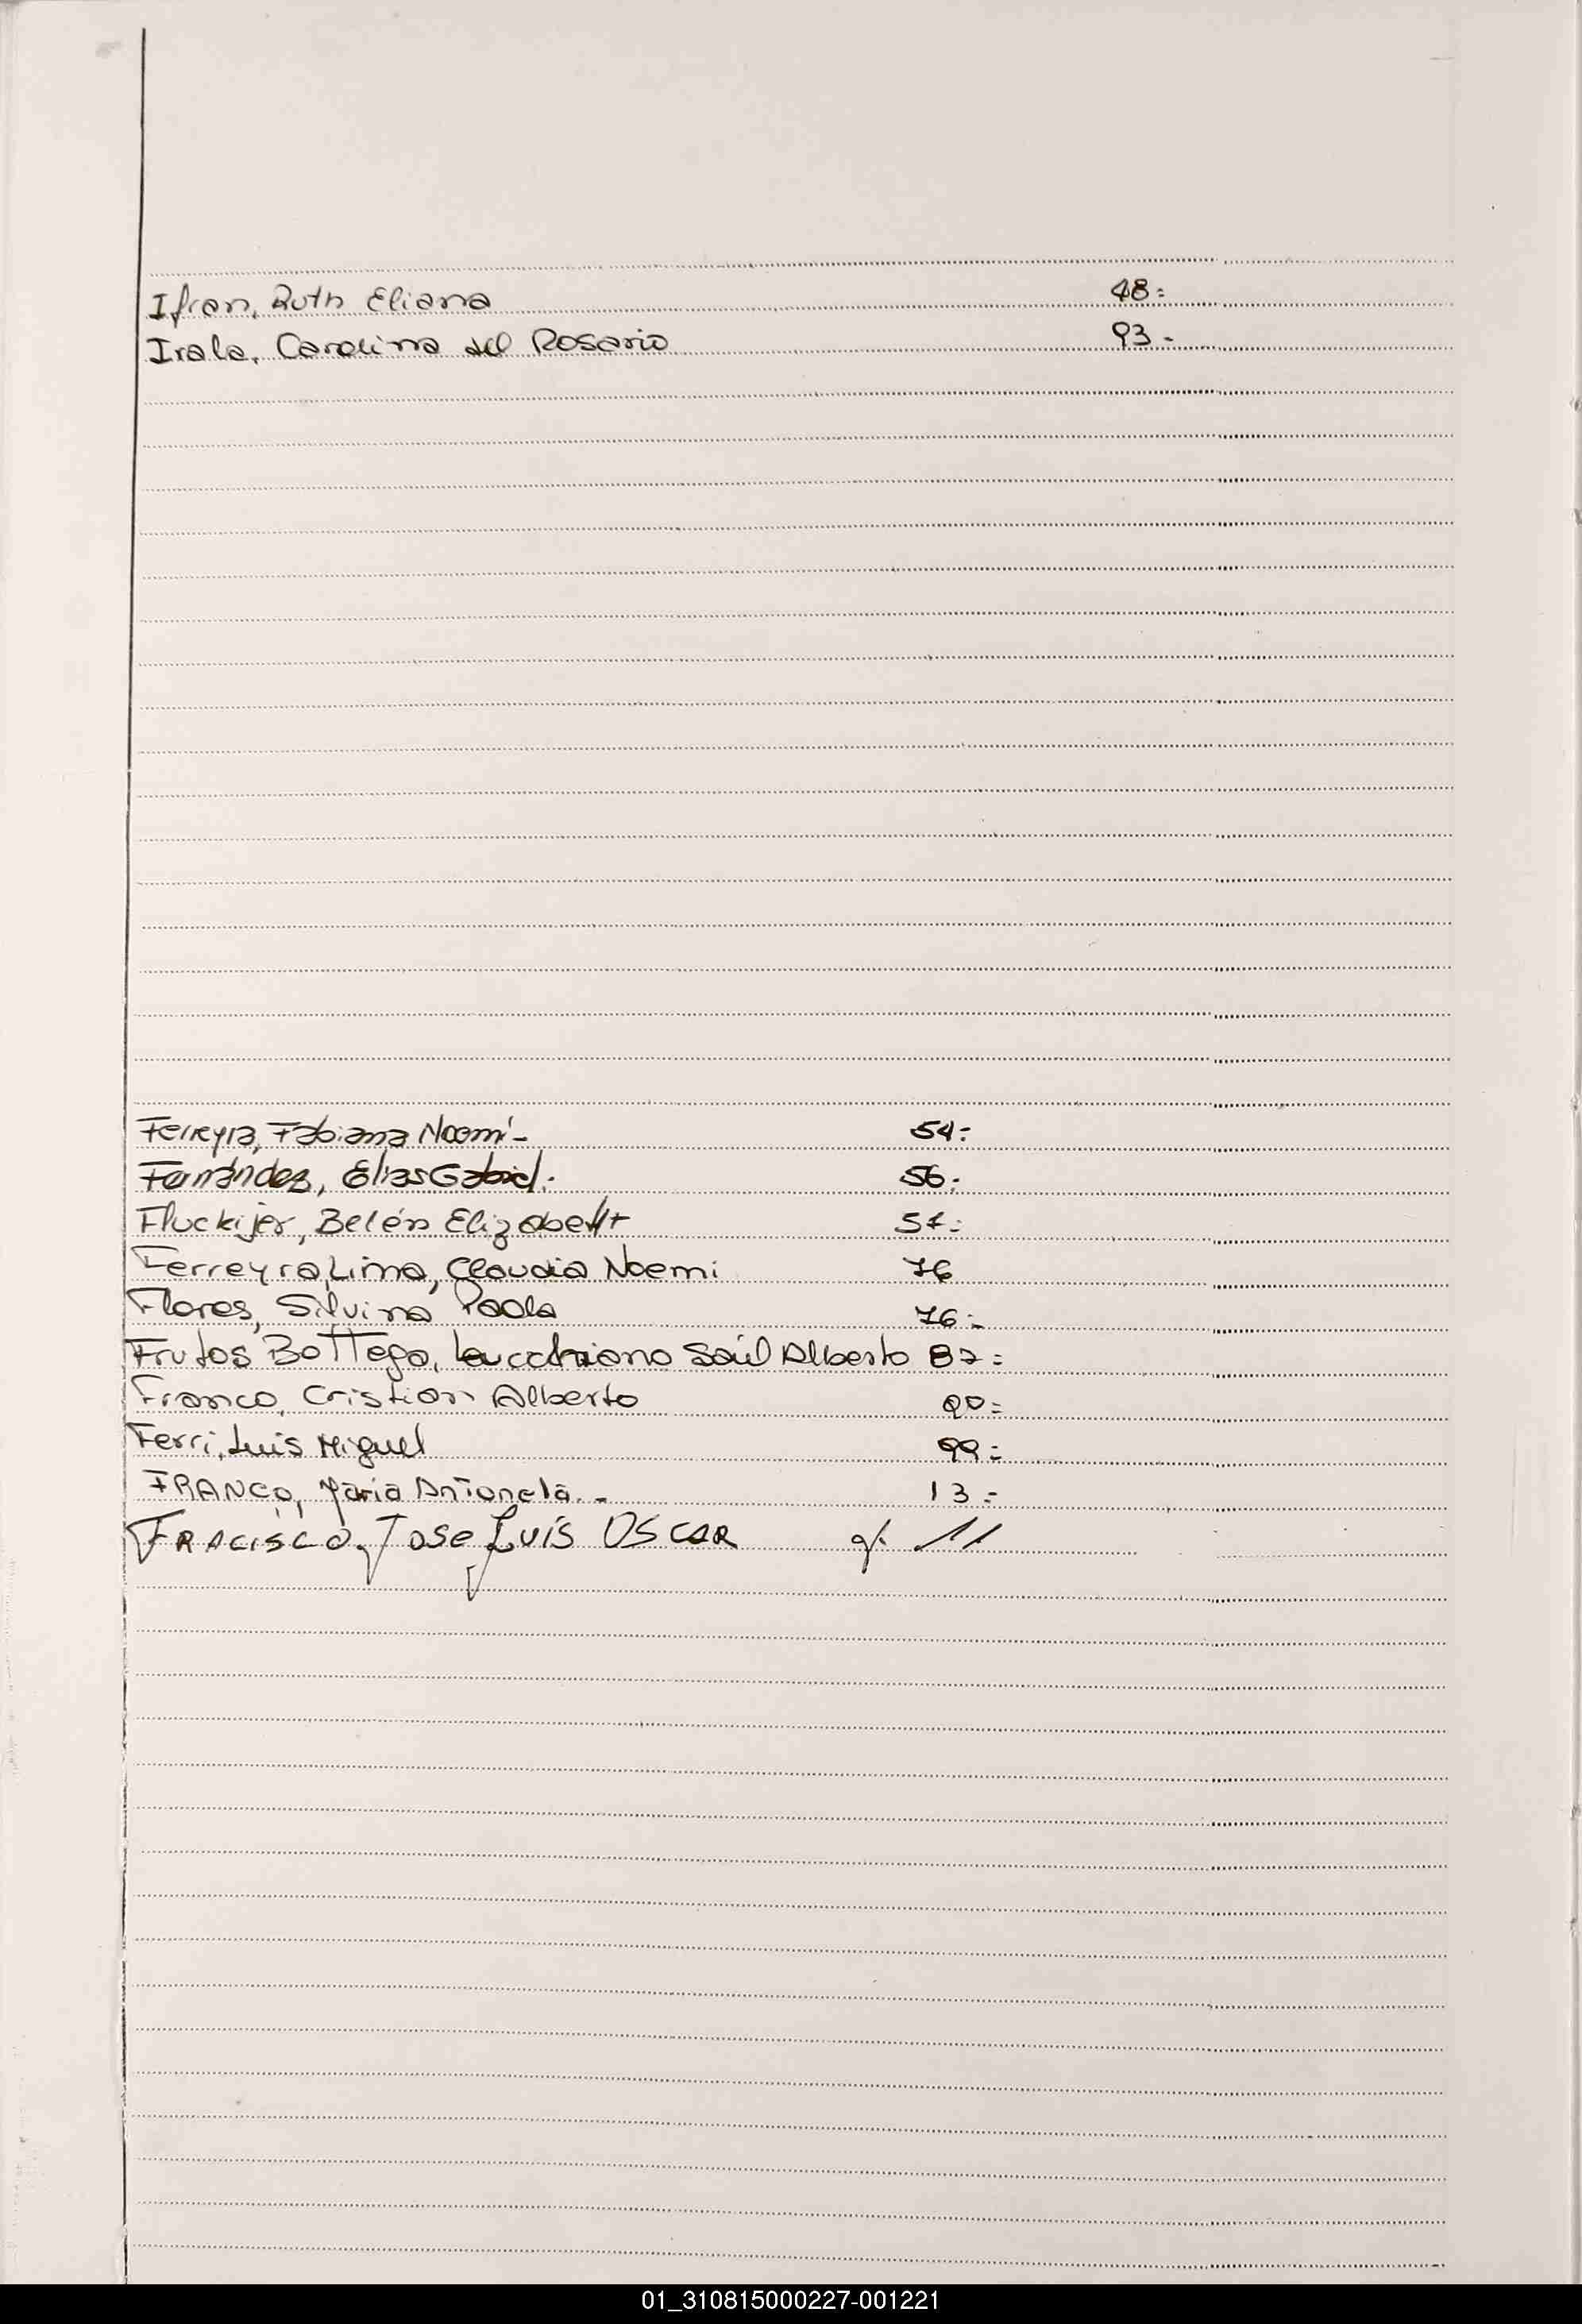 Ifran, Ruth Eliana 48=
Irala, Carolina del Rosario 93-
Ferreyra, Fabiana Noemí- 54=
Fernández, Elías Gabriel. 56=
Fluckijer, Belén Elizabeht 57=
Ferreyra Lima, Claudia Noemi 76
Flores, Silvina Paola 76=
Frutos Bottego, Saúl Alberto 87=
Franco, Cristian Alberto 90=
Ferri, Luis Miguel 99=
FRANCO, María Antonela.- 13=
FRACISCO, Jose Luis OSCAR 11
01_310815000227-001221